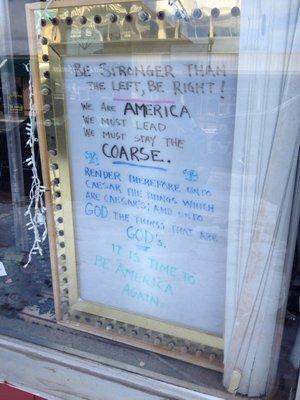 BE STRONGER THAN
THE LEFT, BE RIGHT!
WE ARE AMERICA
WE MUST LEAD
WE MUST STAY THE
COARSE.
RENDER THEREFORE UNTO
CAESAR THE THINGS WHICH
ARE CAESAR'S; AND UNTO
GOD THE THINGS THAT ARE
GOD'S.
IT IS TIME TO
BE AMERICA
AGAIN.